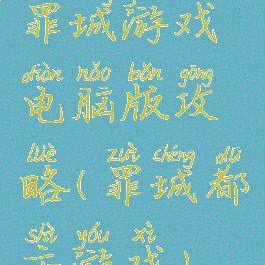 罪城游戏
diàn nǎo bǎn gōng
电脑版攻
lüè zuì chéng dū
略(罪城都
shì yóu xì
市游戏)